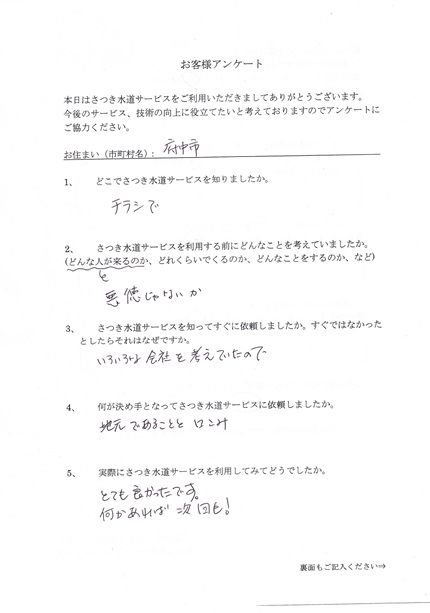 お客様アンケート
本日はさつき水道サービスをご利用いただきましてありがとうございます。
今後のサービス、技術の向上に役立てたいと考えておりますのでアンケートに
ご協力ください。
お住まい（市町村名）： 府中市
1、 どこでさつき水道サービスを知りましたか。
チラシで
2、 さつき水道サービスを利用する前にどんなことを考えていましたか。
（どんな人が来るのか、どれくらいでくるのか、どんなことをするのか、など）
と
悪徳じゃないか
3、 さつき水道サービスを知ってすぐに依頼しましたか。すぐではなかった
としたらそれはなぜですか。
いろいろな会社を考えていたので
4、 何が決め手となってさつき水道サービスに依頼しましたか。
地元であることと口コミ
5、 実際にさつき水道サービスを利用してみてどうでしたか。
とても良かったです。
何かあれば次回も！
裏面もご記入ください⇒